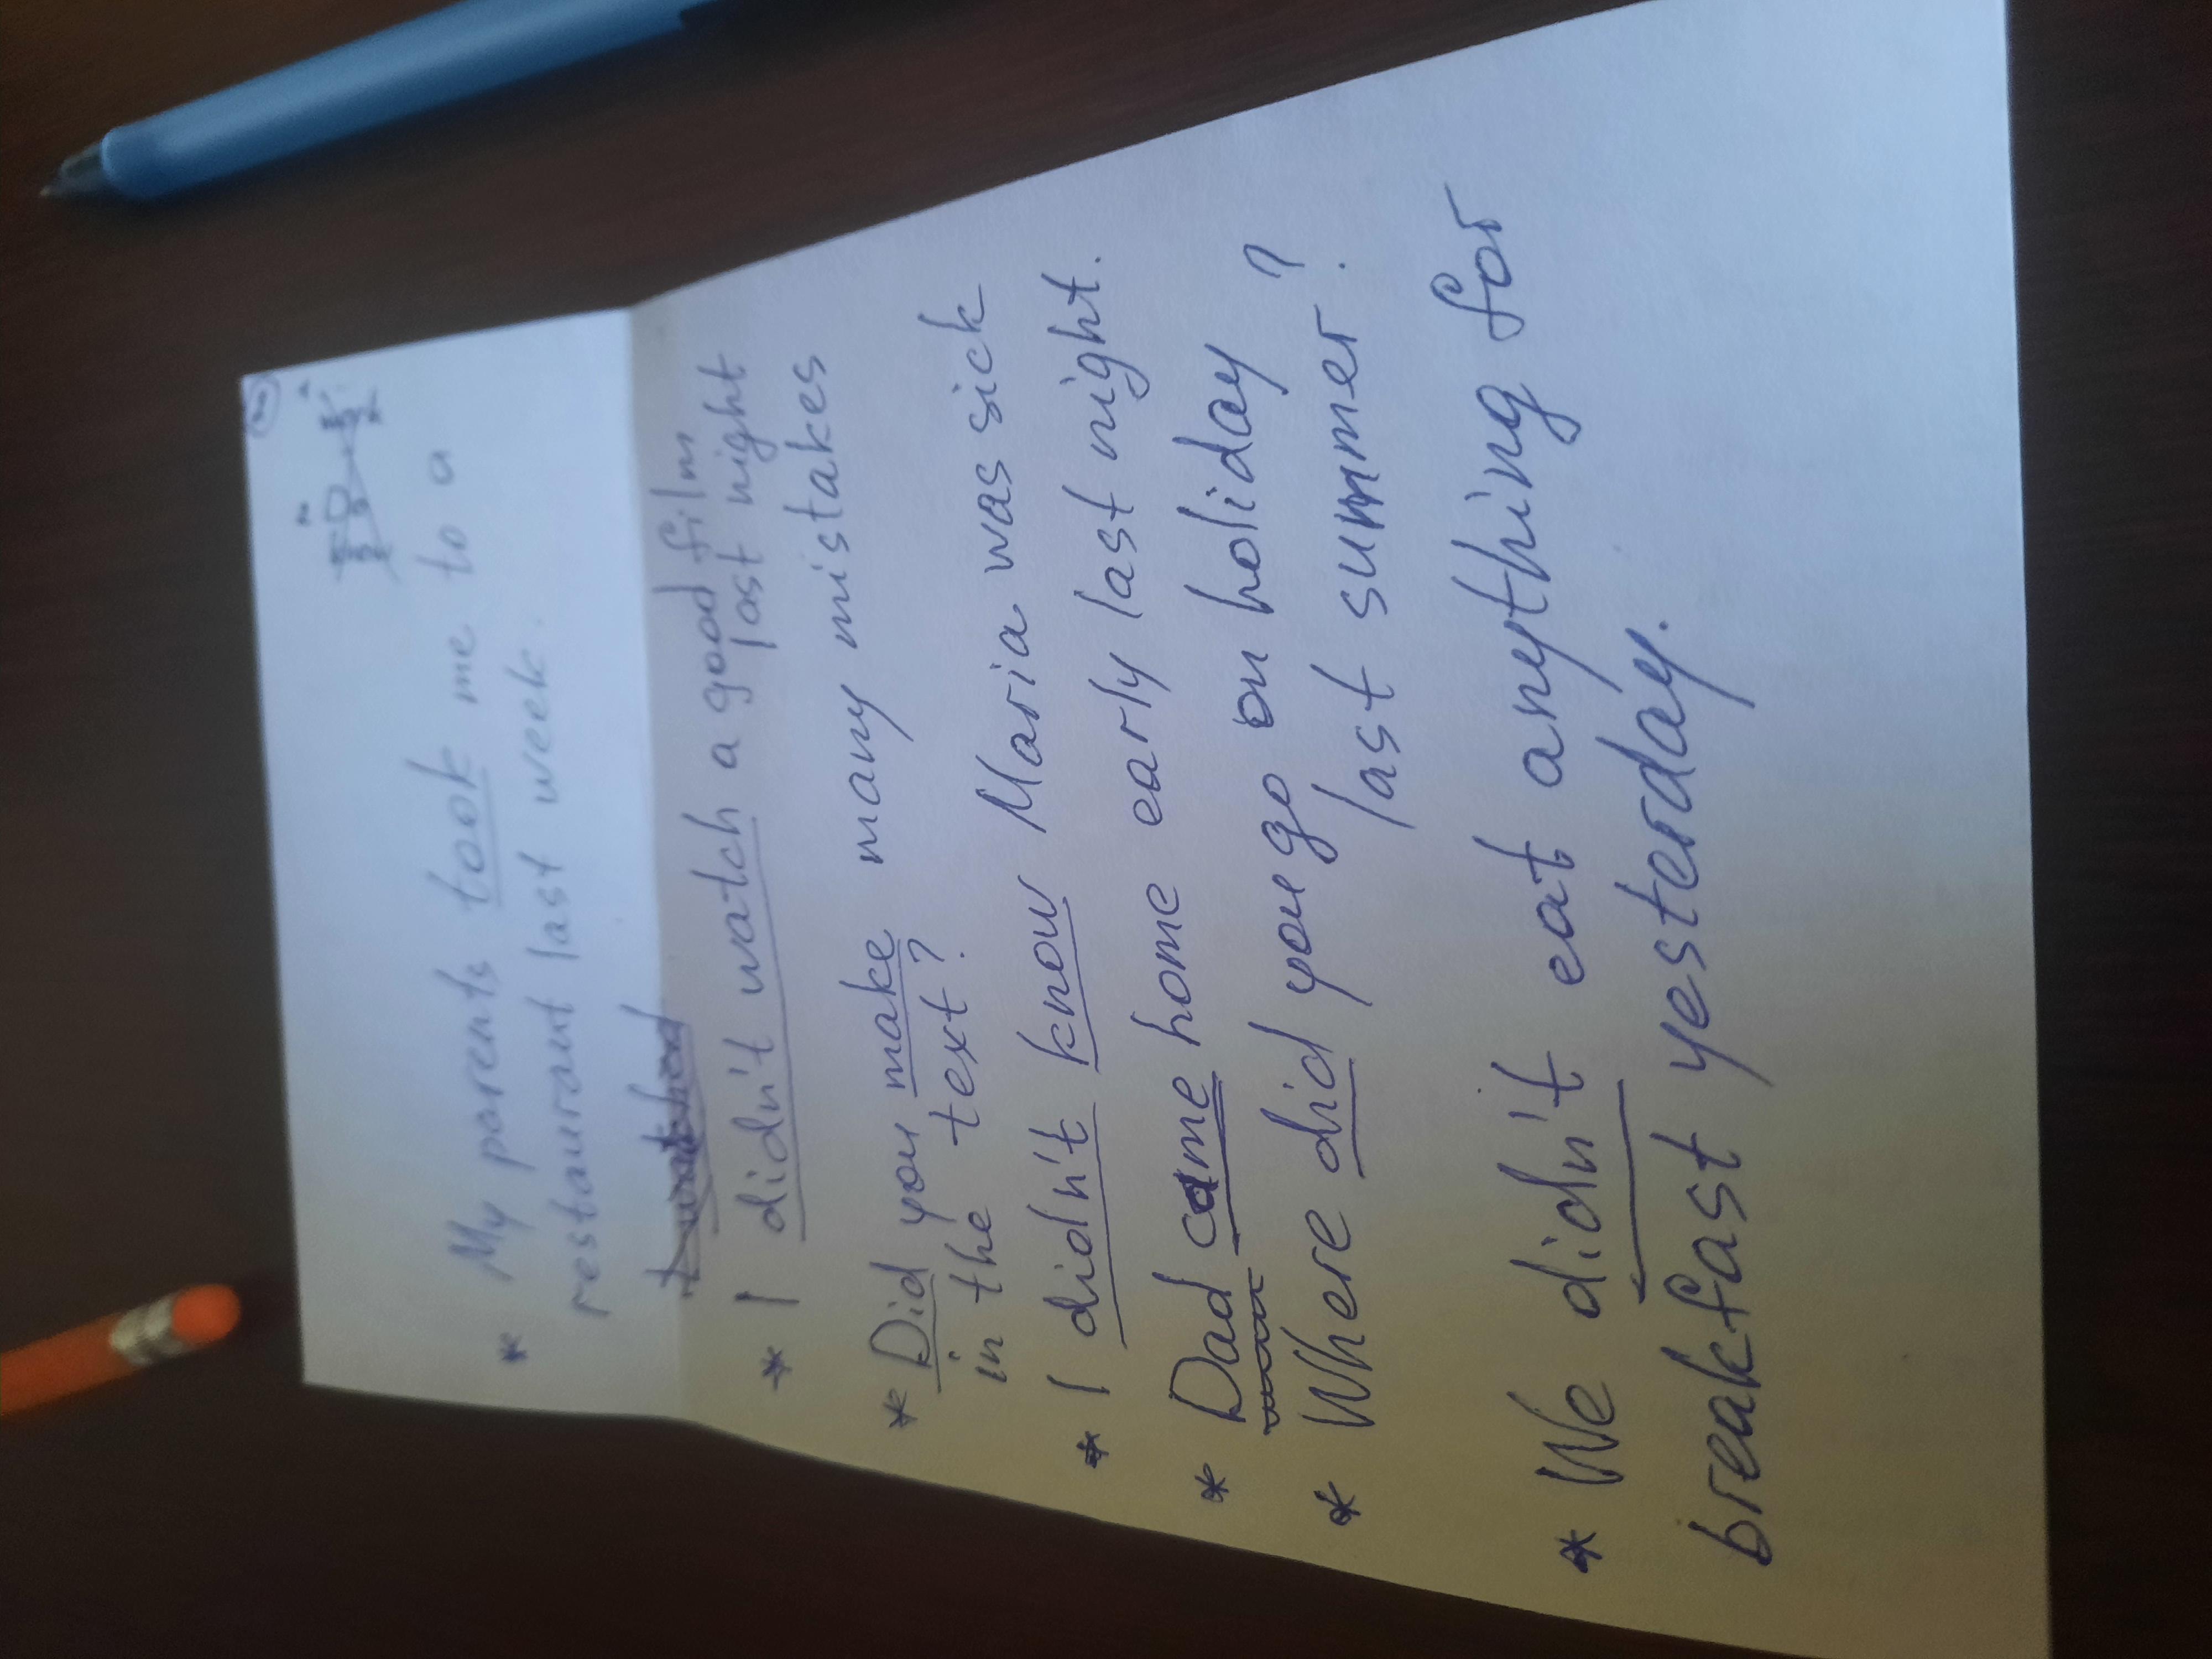 * My parents took me to a
restaurant last week.
* I didn't watch a good film
last night
* Did you make many mistakes
in the text?
* I didn't know Maria was sick
* Dad came home early last night.
* Where did you go on holiday?
last summer?
* We didn't eat anything for
breakfast yesterday.